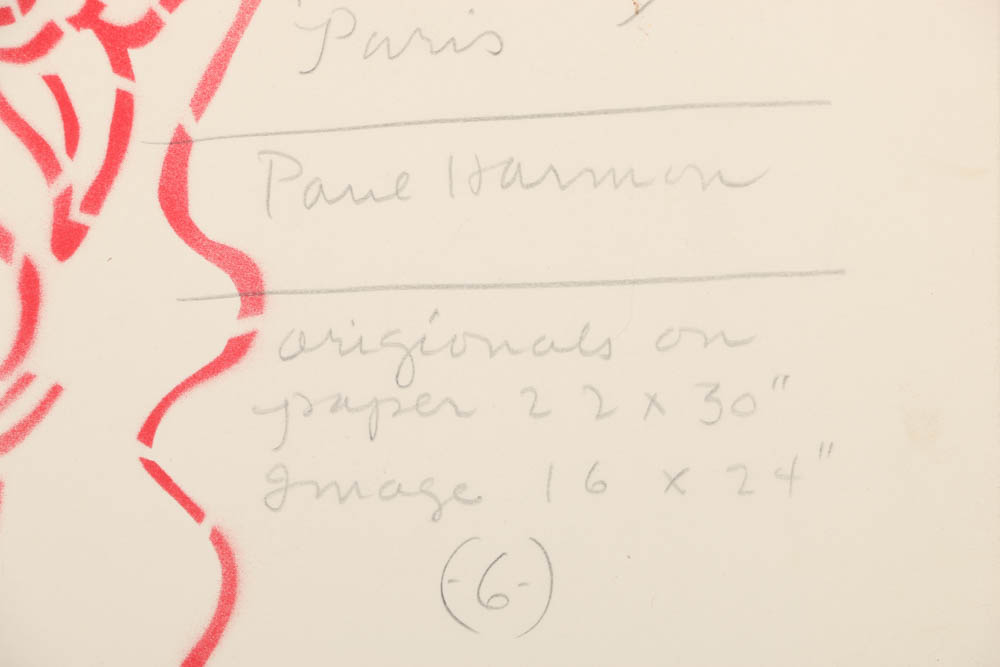 Paris
Paul Harmon
origionals on
paper 22 x 30"
Image 16 x 24"
(-6-)